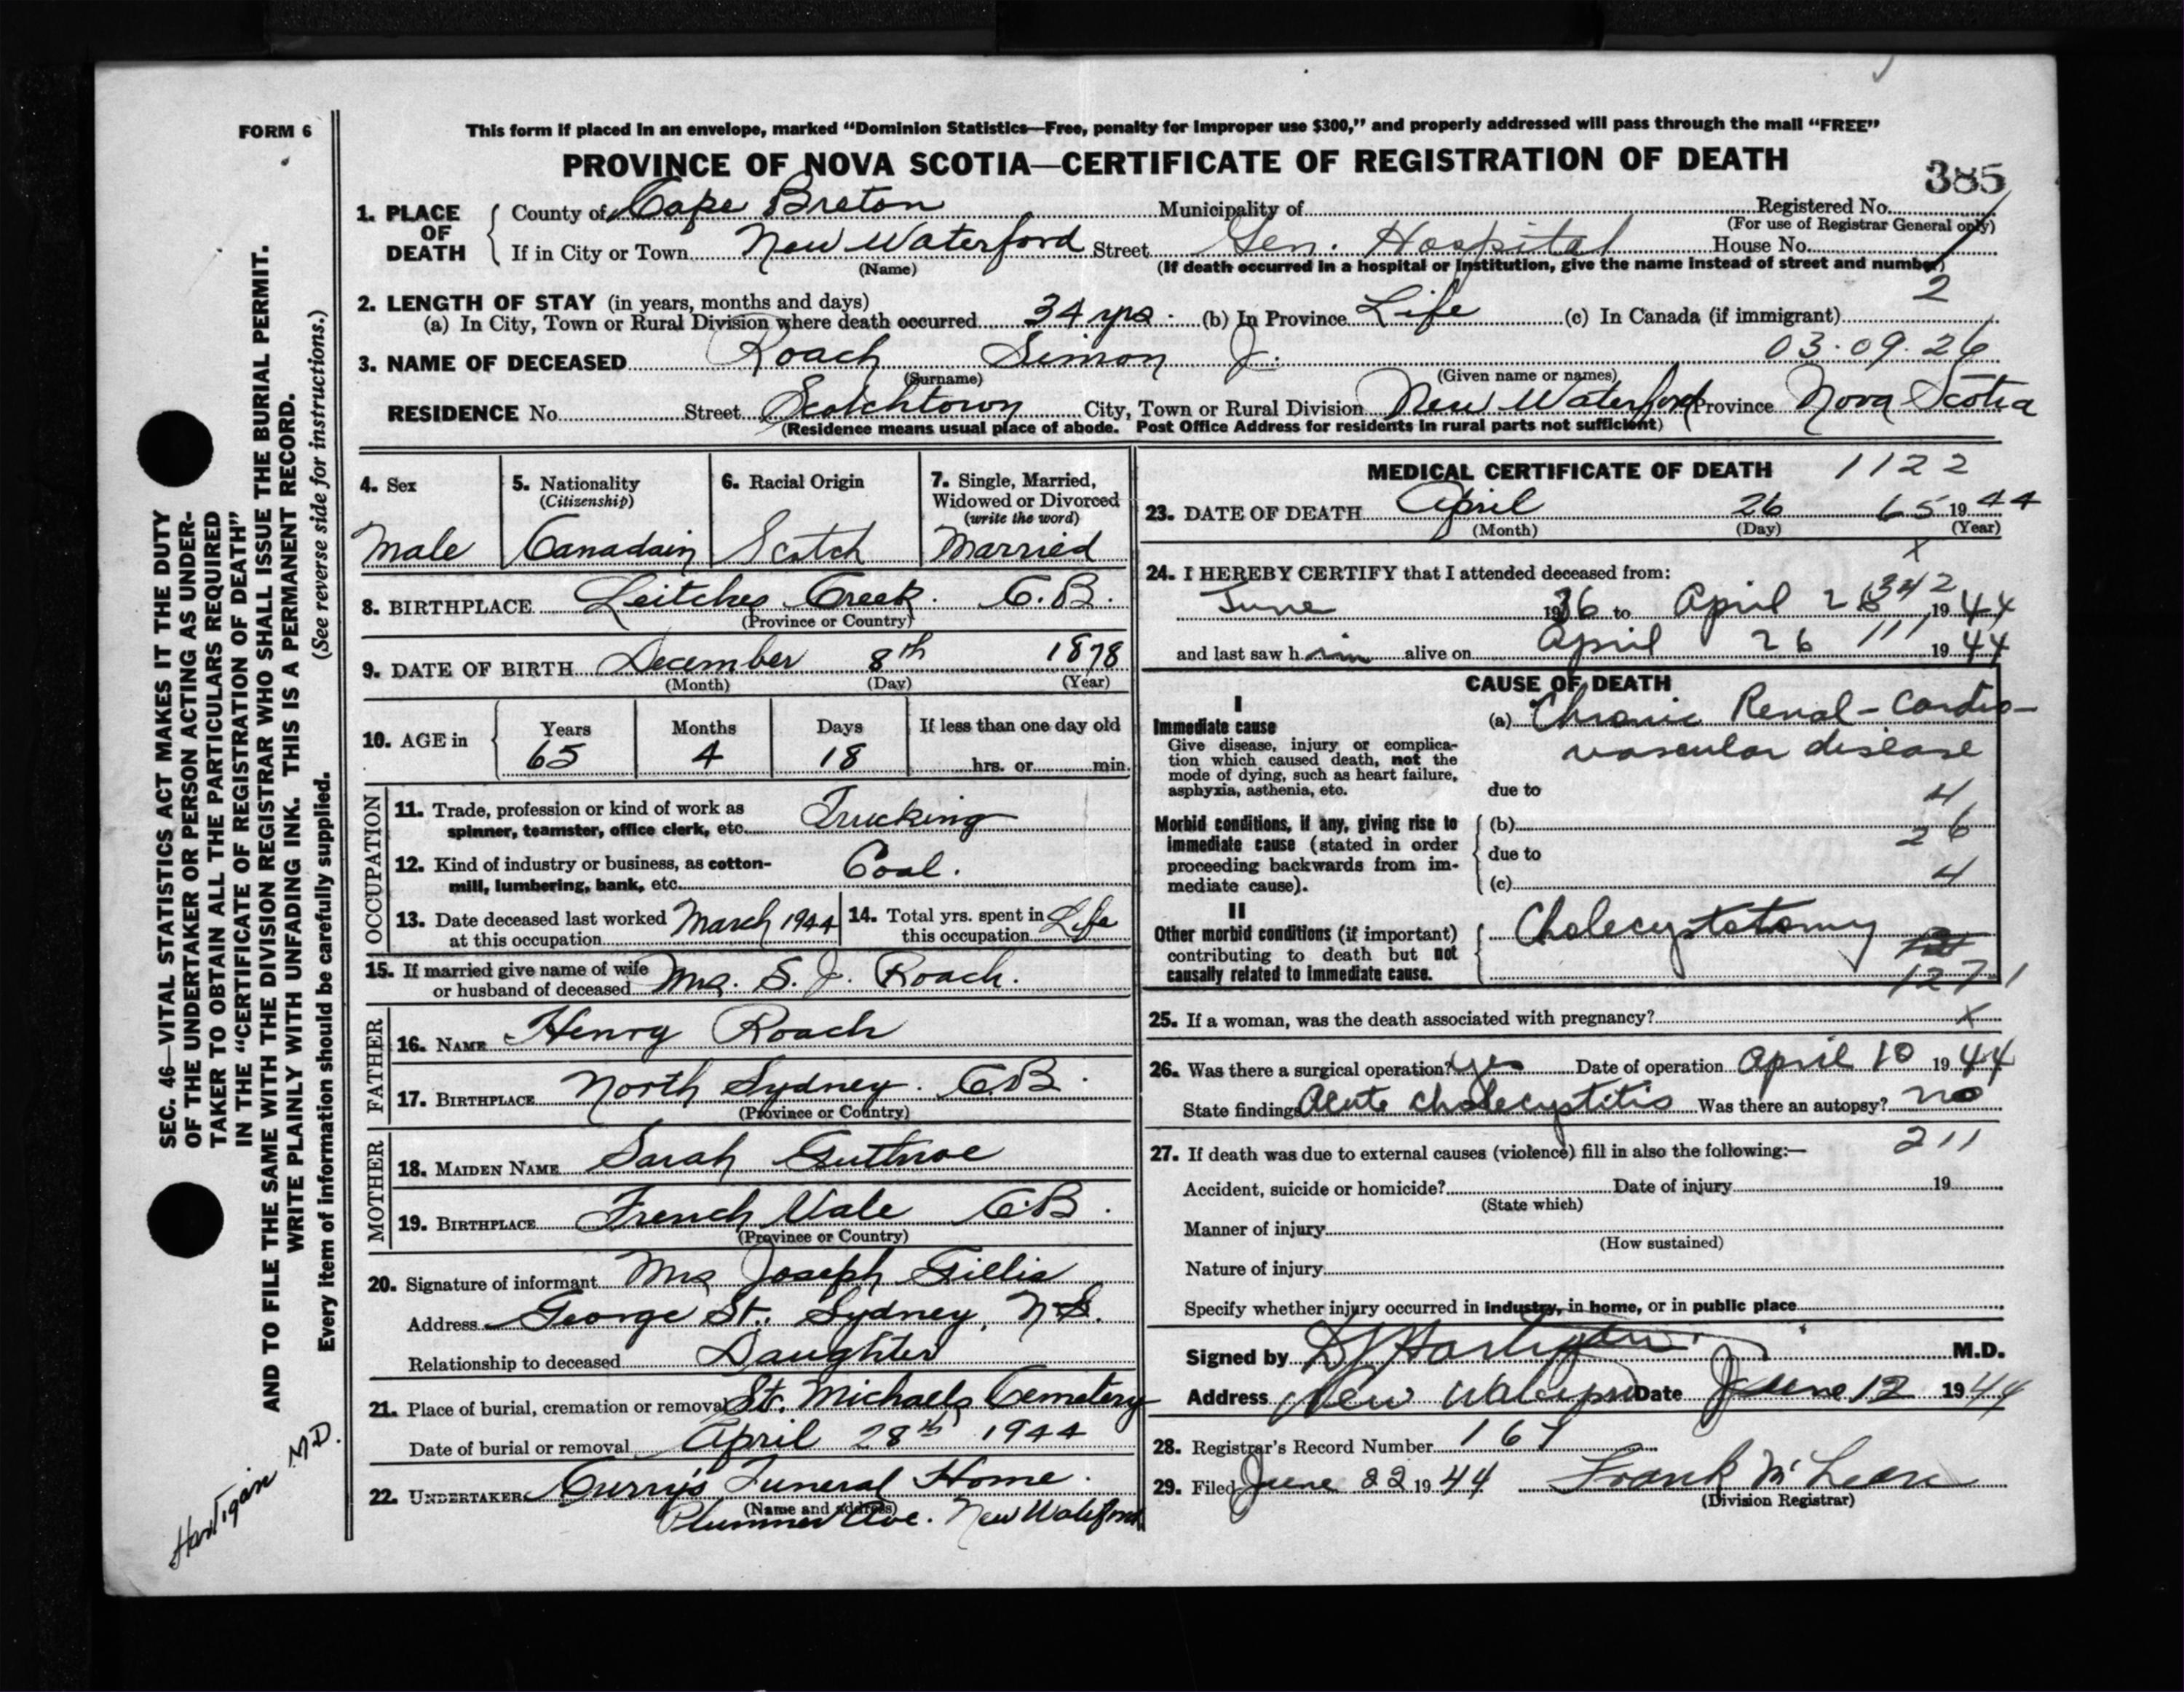 FORM 6
This form if placed in an envelope, marked “Dominion Statistics—Free, penalty for improper use $300,” and properly addressed will pass through the mail “FREE”
PROVINCE OF NOVA SCOTIA—CERTIFICATE OF REGISTRATION OF DEATH
385
1. PLACE OF DEATH County of Cape Breton Municipality of Registered No.
(For use of Registrar General only)
If in City or Town New Waterford Street Gen. Hospital House No.
(Name) (If death occurred in a hospital or institution, give the name instead of street and number)
2
2. LENGTH OF STAY (in years, months and days)
(a) In City, Town or Rural Division where death occurred 34 yrs. (b) In Province Life (c) In Canada (if immigrant)
3. NAME OF DECEASED Roach Simon J. 03.09.26
(Surname) (Given name or names)
RESIDENCE No. Street Scotchtown City, Town or Rural Division New Waterford Province Nova Scotia
(Residence means usual place of abode. Post Office Address for residents in rural parts not sufficient)
4. Sex
Male
5. Nationality
(Citizenship)
Canadain
6. Racial Origin
Scotch
7. Single, Married,
Widowed or Divorced
(write the word)
Married
8. BIRTHPLACE Leitches Creek. C.B.
(Province or Country)
9. DATE OF BIRTH December 8th 1878
(Month) (Day) (Year)
10. AGE in Years Months Days If less than one day old
65 4 18 hrs. or min.
OCCUPATION
11. Trade, profession or kind of work as
spinner, teamster, office clerk, etc. Trucking
12. Kind of industry or business, as cotton-
mill, lumbering, bank, etc. Coal.
13. Date deceased last worked
at this occupation March 1944
14. Total yrs. spent in
this occupation Life
15. If married give name of wife
or husband of deceased Mrs. S. J. Roach.
FATHER
16. NAME Henry Roach
17. BIRTHPLACE North Sydney. C.B.
(Province or Country)
MOTHER
18. MAIDEN NAME Sarah Guthroe
19. BIRTHPLACE French Vale C.B.
(Province or Country)
20. Signature of informant Mrs Joseph Gillis
Address George St., Sydney, N.S.
Relationship to deceased Daughter
21. Place of burial, cremation or removal St. Michaels Cemetery
Date of burial or removal April 28th 1944
22. UNDERTAKER Curry's Funeral Home.
(Name and address)
Plummer Ave. New Waterford
MEDICAL CERTIFICATE OF DEATH 1122
23. DATE OF DEATH April 26 65 1944
(Month) (Day) (Year)
x
24. I HEREBY CERTIFY that I attended deceased from:
342
June 1936 to April 26, 1944
and last saw him alive on April 26 111, 1944
CAUSE OF DEATH
I
Immediate cause
Give disease, injury or complica-
tion which caused death, not the
mode of dying, such as heart failure,
asphyxia, asthenia, etc.
(a) Chronic Renal-Cardio-
vascular disease
due to
4
Morbid conditions, if any, giving rise to
immediate cause (stated in order
proceeding backwards from im-
mediate cause).
(b)
26
due to
4
(c)
II
Other morbid conditions (if important)
contributing to death but not
causally related to immediate cause.
Cholecystotomy
1271
25. If a woman, was the death associated with pregnancy? x
26. Was there a surgical operation? yes Date of operation April 10 1944
State findings Acute cholecystitis Was there an autopsy? no
211
27. If death was due to external causes (violence) fill in also the following:—
Accident, suicide or homicide? Date of injury 19
(State which)
Manner of injury
(How sustained)
Nature of injury
Specify whether injury occurred in industry, in home, or in public place
Signed by DJ Hartigan M.D.
Address New Waterford Date June 12 1944
28. Registrar's Record Number 167
29. Filed June 22 1944 Frank McLean
(Division Registrar)
SEC. 46—VITAL STATISTICS ACT MAKES IT THE DUTY
OF THE UNDERTAKER OR PERSON ACTING AS UNDER-
TAKER TO OBTAIN ALL THE PARTICULARS REQUIRED
IN THE “CERTIFICATE OF REGISTRATION OF DEATH”
AND TO FILE THE SAME WITH THE DIVISION REGISTRAR WHO SHALL ISSUE THE BURIAL PERMIT.
WRITE PLAINLY WITH UNFADING INK. THIS IS A PERMANENT RECORD.
(See reverse side for instructions.)
Every item of information should be carefully supplied.
Hartigan M.D.